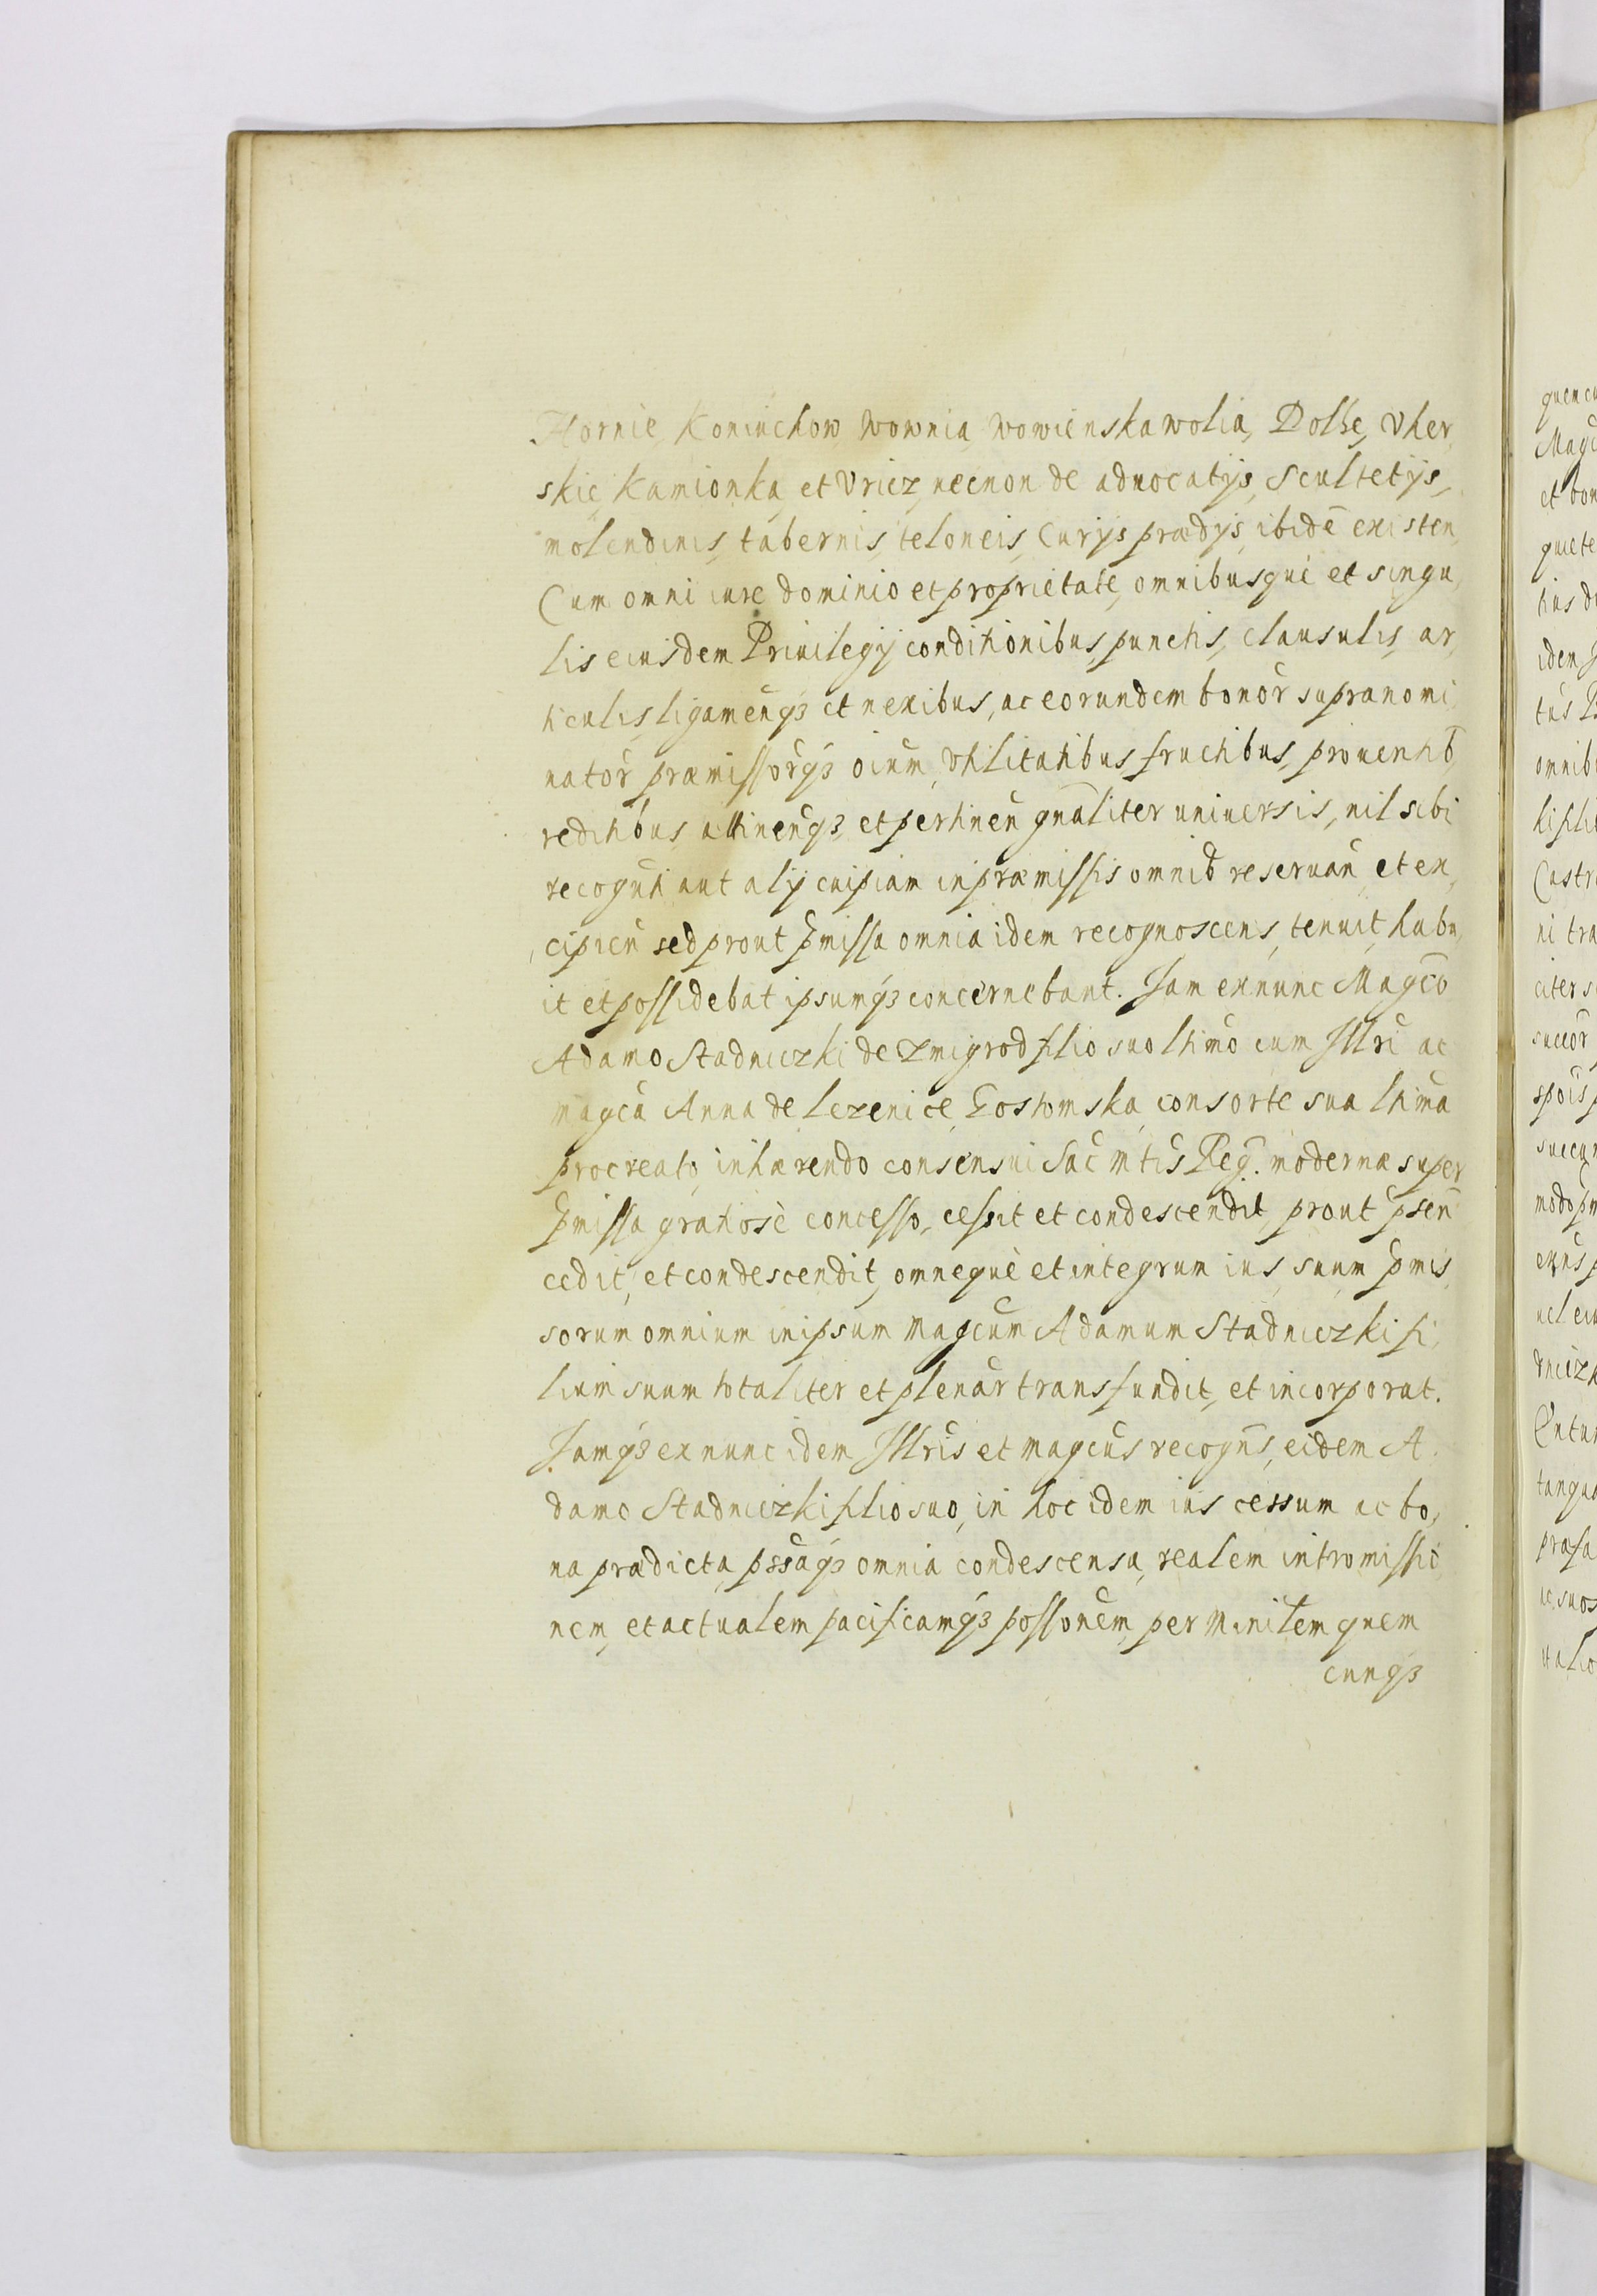 Hornie, Koniuchow, Wownia, Wowienska wolia, Dolhe, Uher,
skie, Kamionka, et Uricz, necnon de aduocatijs, Scultetijs,
molendinis, tabernis, teloneis, Curijs prædijs, ibidē existen,
Cum omni iure dominio et proprietate, omnibusquè et singu,
lis eiusdem Priuilegij conditionibus, punctis, clausulis, ar,
ticulis, ligamen̄qȝ et nexibus, ac eorundem bonor̄ supranomi,
nator̄ præmissor̄qȝ oīum, Utilitatibus fructibus, prouentib̄,
reditibus attinen̄qȝ, et pertinen̄ gnāliter uniuersis, nil sibi
recogn̄ti aut alij cuipiam in præmissis omnib̄ reseruan̄ et ex,
cipien̄ sed prout p̄missa omnia idem recognoscens, tenuit, habu,
it et possidebat ipsumqȝ concernebant. Jam exnunc Magc̄o
Adamo Stadniczki de Zmigrod filio suo lt̄imo cum Jllri ac
magc̄a Anna de Lezenice, Gostomska, consorte sua lt̄ima
procreato, inhærendo consensui Sac̄ Mt̄is Reḡ. modernæ super
p̄missa gratiosè concesso, cessit et condescendit, prout p̄sen̄
cedit, et condescendit, omnequè et integrum ius, suum p̄mis,
sorum omnium in ipsum Magc̄um Adamum Stadniczki fi,
lium suum totaliter et plenar̄ transfundit, et incorporat.
Jamqȝ exnunc idem Jllris et magc̄us recogn̄s, eidem A,
damo Stadniczki filio suo, in hoc idem ius cessum ac bo,
na prædicta, p̄ssaqȝ omnia condescensa, realem intromissio
nem, et actualem pacificamqȝ possōnem, per Minīlem quem
cunqȝ
quencu
Magc
et bon
quiete
tius
iden
tus
omnib
ni tra
citer s
succor̄
tanqua
præfa